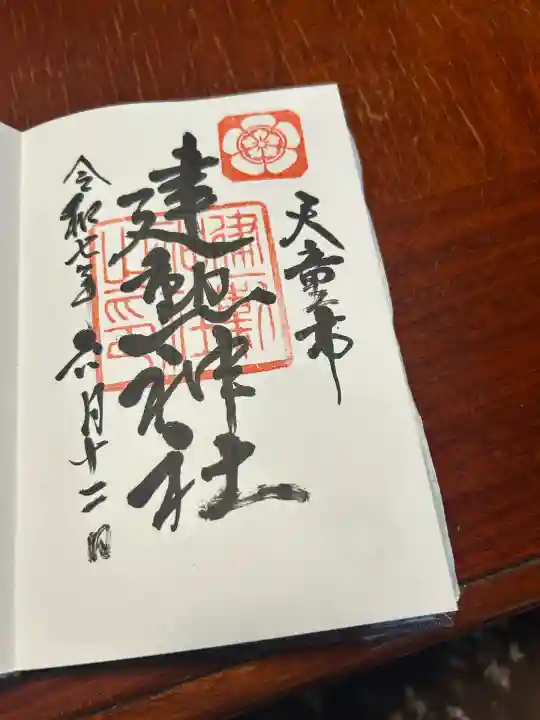 天童市
建勲神社
令和七年 六月十二日